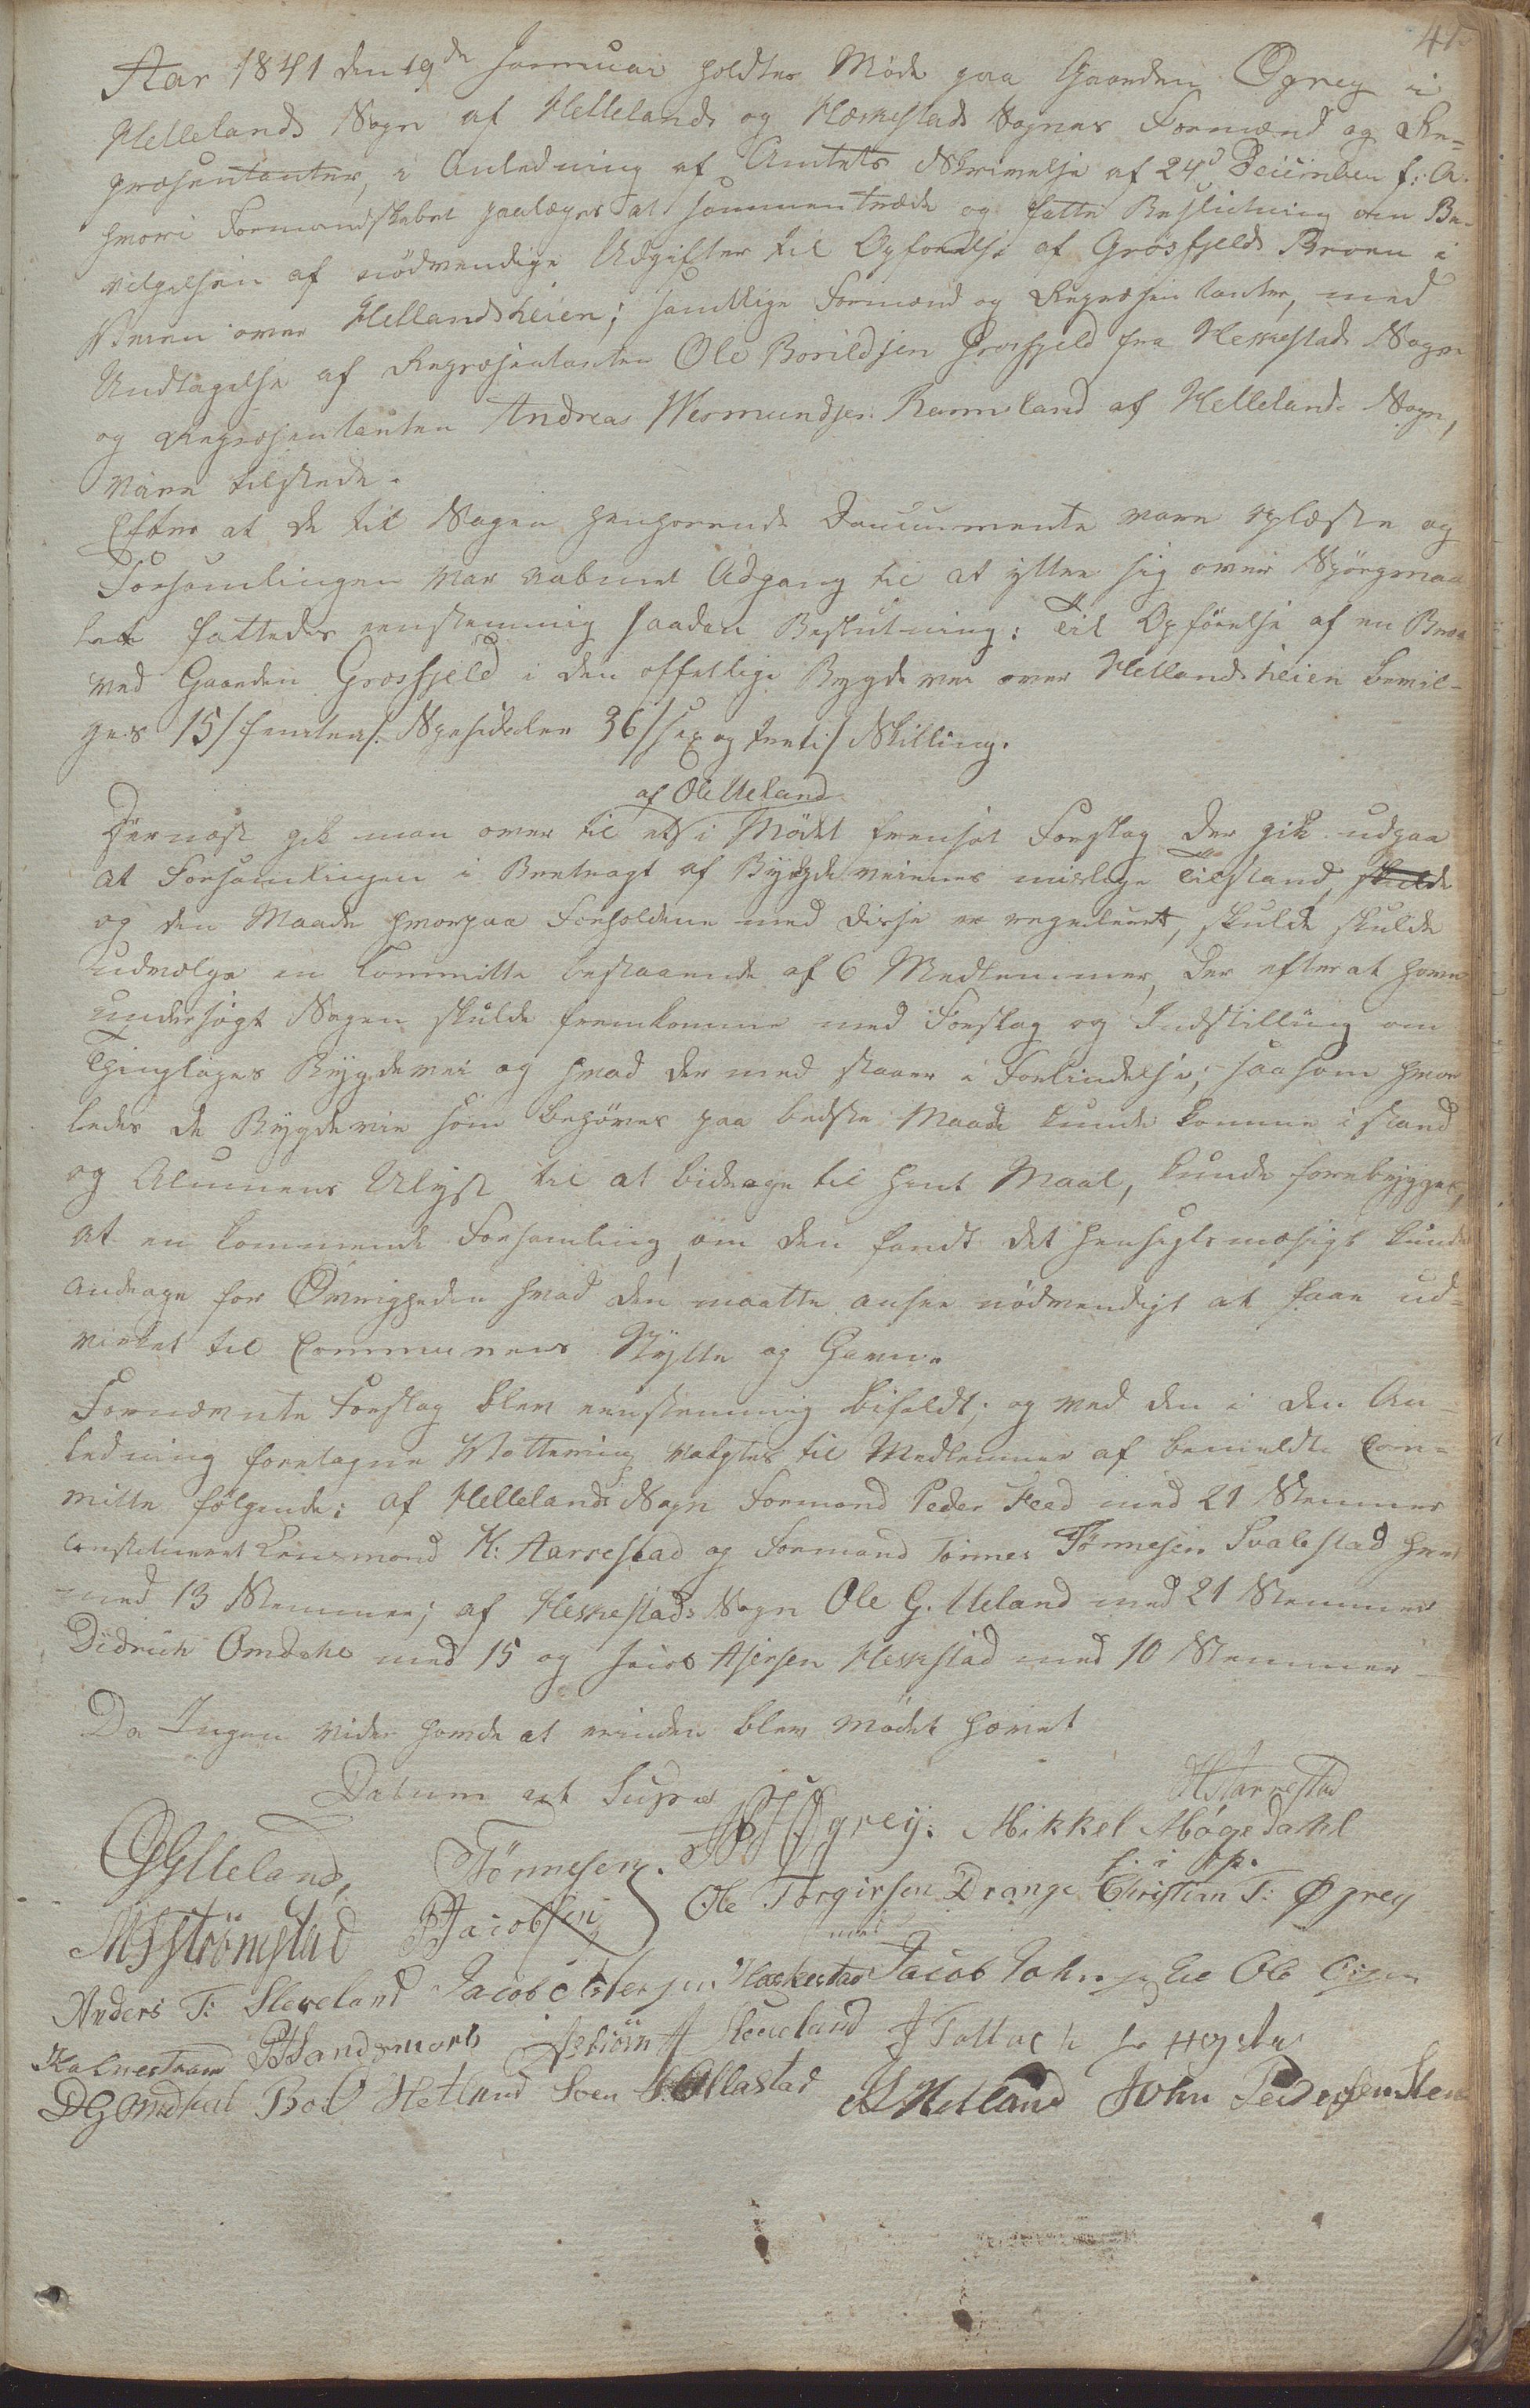 41
Aar 1841 den 19de Januar holdtes Møde paa Gaarden Øgrey i
Hellelands Sogn af Hellelands og Heskestads Sognes Formænd og Re-
præsentanter, i Anledning af Amtets Skrivelse af 24d December f: A.
hvori Formandskabet paalægges at sammentræde og fatte Beslutning om Be-
vilgelsen af nødvendige Udgifter til Opførelse af Grøsfjelds Broen i
Veien over Hellandsheien; samtlige Formænd og Repræsentanter, med
Undtagelse af Repræsentanten Ole Borildsen Grosfjeld fra Heskestads Sogn
og Repræsentanten Andreas Wermundsen Ramsland af Hellelands Sogn,
vare tilstede.
Efter at de til Sagen henhørende Documente vare oplæste og
Forsamlingen var aabnet Adgang til at yttre sig over Spørgsmaa-
let fattedes eenstemmig saadan Beslutning: Til Opførelse af en Broe
ved Gaarden Grosfjeld i den offetlige Bygdevei over Hellandsheien bevil-
ges 15/femten/ Spesidaler 36/sex og treti/ Skilling.
af Ole Ueland
Dernæst gik man over til et i Mødet fremsat Forslag der gik ud paa
at Forsamlingen i Bretragt af Bygdeveienes mislige Tilstand, skulde
og den Maade hvorpaa Forholdene med disse er reguleret, skulde skulde
udvælge en Committe bestaaende af 6 Medlemmer, der efter at have
undersøgt Sagen skulde fremkomme med Forslag og Indstilling om
Thinglagets Bygdevei og hvad der med staaer i Forbindelse; saasom hvor
ledes de Bygdeveie som behøves paa bedste Maade kunde komme i stand
og Almuens Ulyst til at bidrage til hint Maal, kunde forebygges,
at en kommende Forsamling, om den fandt det hensigtsmæsigt kunde
andrage for Øvrigheden hvad den maatte ansee nødvendigt at faae ud-
virket til Communens Nytte og Gavn.
Fornævnte Forslag blev eenstemmig bifaldt; og ved den i den An-
ledning foretagne Vottering valgtes til Medlemmer af bemeldte Com-
mitte følgende: af Hellelands Sogn Formand Peder Feed med 21 Stemmer
constitueret Lensmand K: Aarrestad og Formand Tønnes Tønnesen Svalestad hver
med 13 Stemmer; af Heskestads Sogn Ole G. Ueland med 21 Stemmer
Didrich Omdahl med 15 og Jacob Asersen Heskstad med 10 Stemmer
Da Ingen vider havde at erindre blev Mødet hævet
Datum ut Supra
KAarrestad
OGUeland, Tønnesen. Øgrey. Mikkel Møgedahl
MSStrømstad PJacobsen Ole Torgirsen Drange Christian T: Øgrey
Anders T: Sleveland Jacob Heskestad Jacob Ole
Sandsmark A Sleveland J Tollach
DGOmdal Hetland Sven Ollastad Hetland John Pedersen